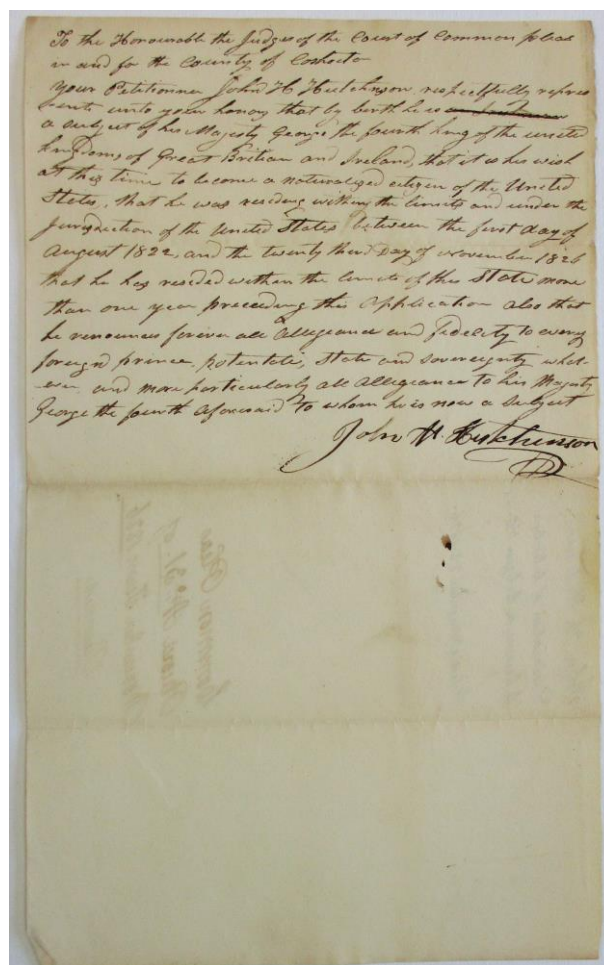 To the Honourable the Judges of the Court of Common pleas
in and for the County of Coshocto
Your Petitioner John H Hutchinson respectfully repres
sents unto your honors that by birth he is
a subject of his Majesty George the fourth king of the united
kingdoms of Great Britian and Ireland, that it is his wish
at this time to become a naturalized citizen of the United
States, that he was residing within the limits and under the
Jurisdiction of the United States between the first day of
August 1822, and the twenty third Day of November 1826
that he has resided within the limits of this State more
than one year preceeding this Application also that
he renounces forever all Allegiance and fidelity to every
foreign prince, potentate, State and sovereignty what-
ever and more particularly all Allegiance to his Majesty
George the fourth aforesaid to whom he is now a subject
John H. Hutchinson